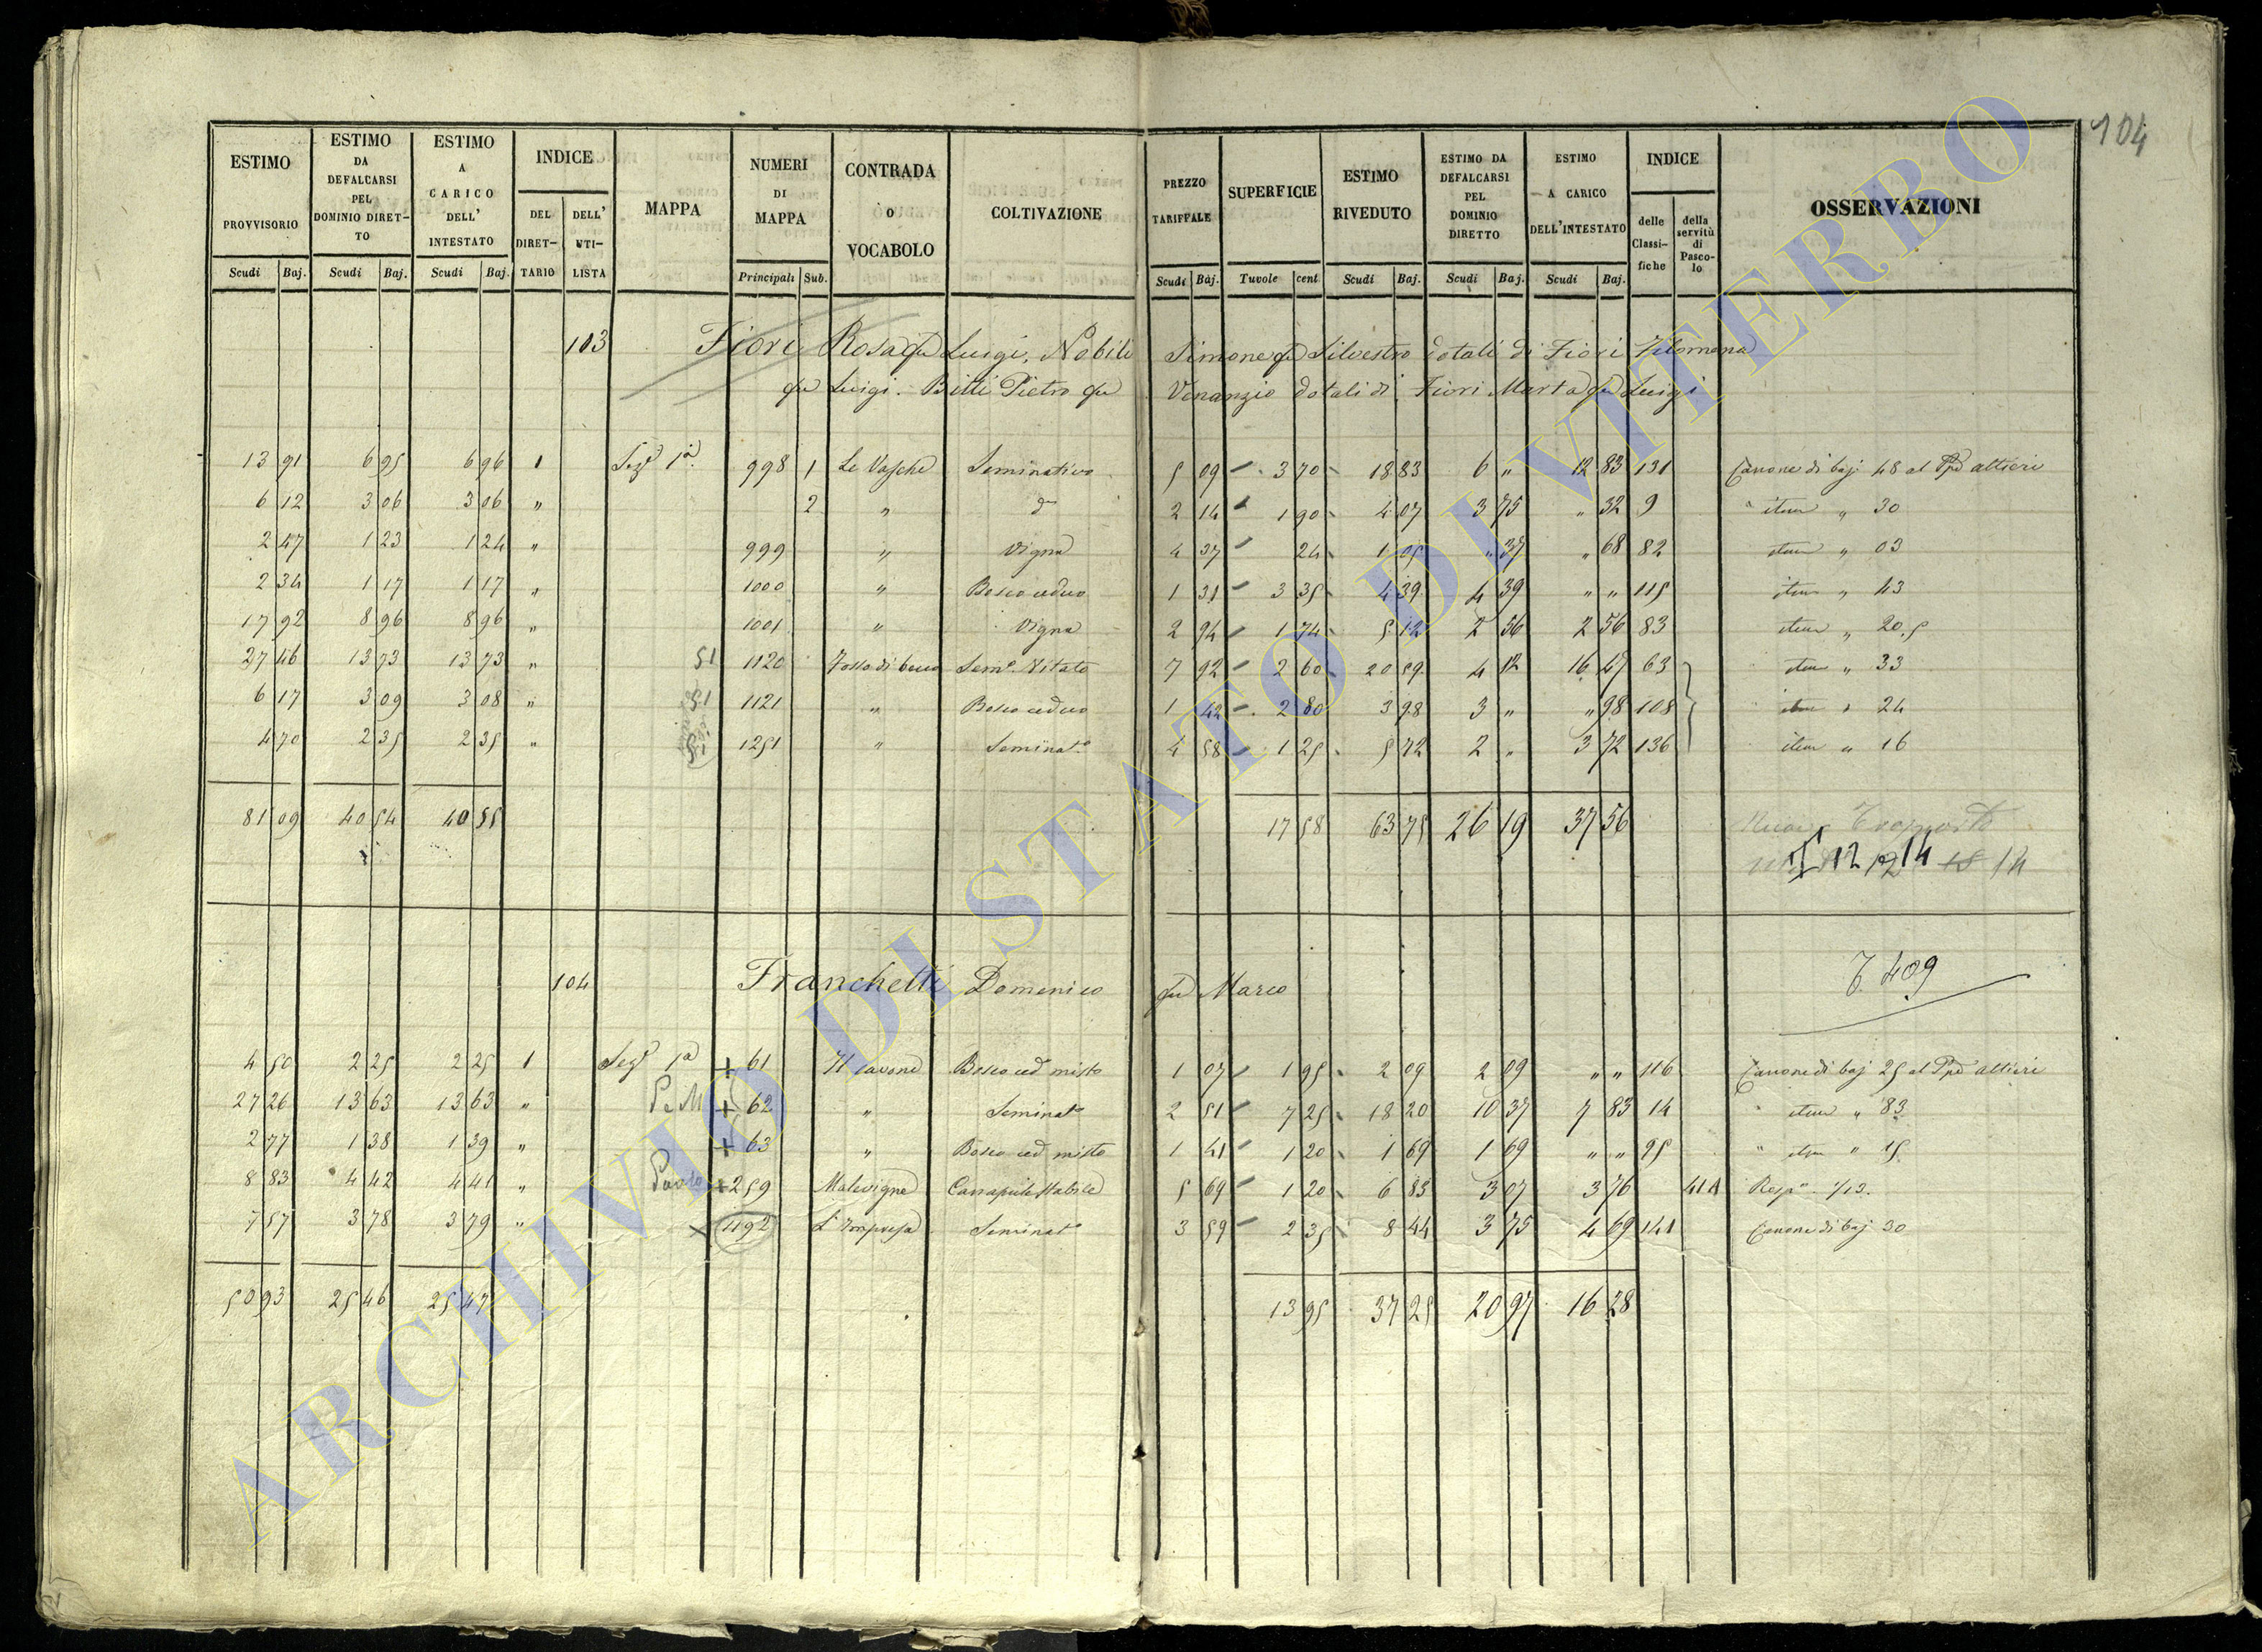 104
ESTIMO PROVVISORIO
ESTIMO DA DEFALCARSI PEL DOMINIO DIRET- TO
ESTIMO A CARICO DELL' INTESTATO
INDICE
DEL DIRET- TARIO
DELL' UTI- LISTA
MAPPA
NUMERI DI MAPPA
CONTRADA O VOCABOLO
COLTIVAZIONE
PREZZO TARIFFALE
SUPERFICIE
ESTIMO RIVEDUTO
ESTIMO DA DEFALCARSI PEL DOMINIO DIRETTO
ESTIMO A CARICO DELL'INTESTATO
INDICE
delle Classi- fiche
della servitù di Pasco- lo
OSSERVAZIONI
Scudi Baj. Scudi Baj. Scudi Baj. Principali Sub. Scudi Baj. Tavole cent Scudi Baj. Scudi Baj. Scudi Baj.
103 Fiori Rosa qu Luigi, Nobili Simone qu Silvestro dotali di Fiori Filomena
qu Luigi. Bitti Pietro qu Venanzio dotali di Fiori Marta qu Luigi
13 91 6 95 6 96 1 Seze 1a 998 1 Le Vasche Seminativo 5 09 3 70 18 83 6 " 12 83 131 Canone di baj 48 al Ppe altieri
6 12 3 06 3 06 " 2 " do 2 14 1 90 4 07 3 75 " 32 9 " item " 30
2 47 1 23 1 24 " 999 " Vigna 4 37 24 1 05 " 37 " 68 82 item " 03
2 34 1 17 1 17 " 1000 " Bosco ceduo 1 31 3 35 4 39 4 39 " " 115 item " 43
17 92 8 96 8 96 " 1001 " Vigna 2 94 1 74 5 12 2 56 2 56 83 item " 20.5
27 46 13 73 13 73 " 51 1120 Seme Vitato 7 92 2 60 20 59 4 12 16 47 63 item " 33
6 17 3 09 3 08 " 51 1121 " Bosco ceduo 1 42 2 80 3 98 3 " " 98 108 item " 24
4 70 2 35 2 35 " 51 1251 " Seminato 4 58 1 25 5 72 2 " 3 72 136 item " 16
81 09 40 54 40 55 17 58 63 75 26 19 37 56
12 14 14
T. 409
104 Franchetti Domenico qu Marco
4 50 2 25 2 25 1 Seze 1a + 61 Il cavone Bosco ced misto 1 07 1 95 2 09 2 09 " " 116 Canone di baj 25 al Ppe altieri
27 26 13 63 13 63 " + 62 " Seminato 2 51 7 25 18 20 10 37 7 83 14 " item " 83
2 77 1 38 1 39 " + 63 " Bosco ced misto 1 41 1 20 1 69 1 69 " " 95 " item " 15
8 83 4 42 4 41 " + 259 Malevigne 5 69 1 20 6 83 3 07 3 76 41A
7 57 3 78 3 79 " x 1192 L'Impresa Seminato 3 59 2 35 8 44 3 75 4 69 141 Canone di baj 30
50 93 25 46 25 47 13 95 37 25 20 97 16 28
ARCHIVIO DI STATO DI VITERBO